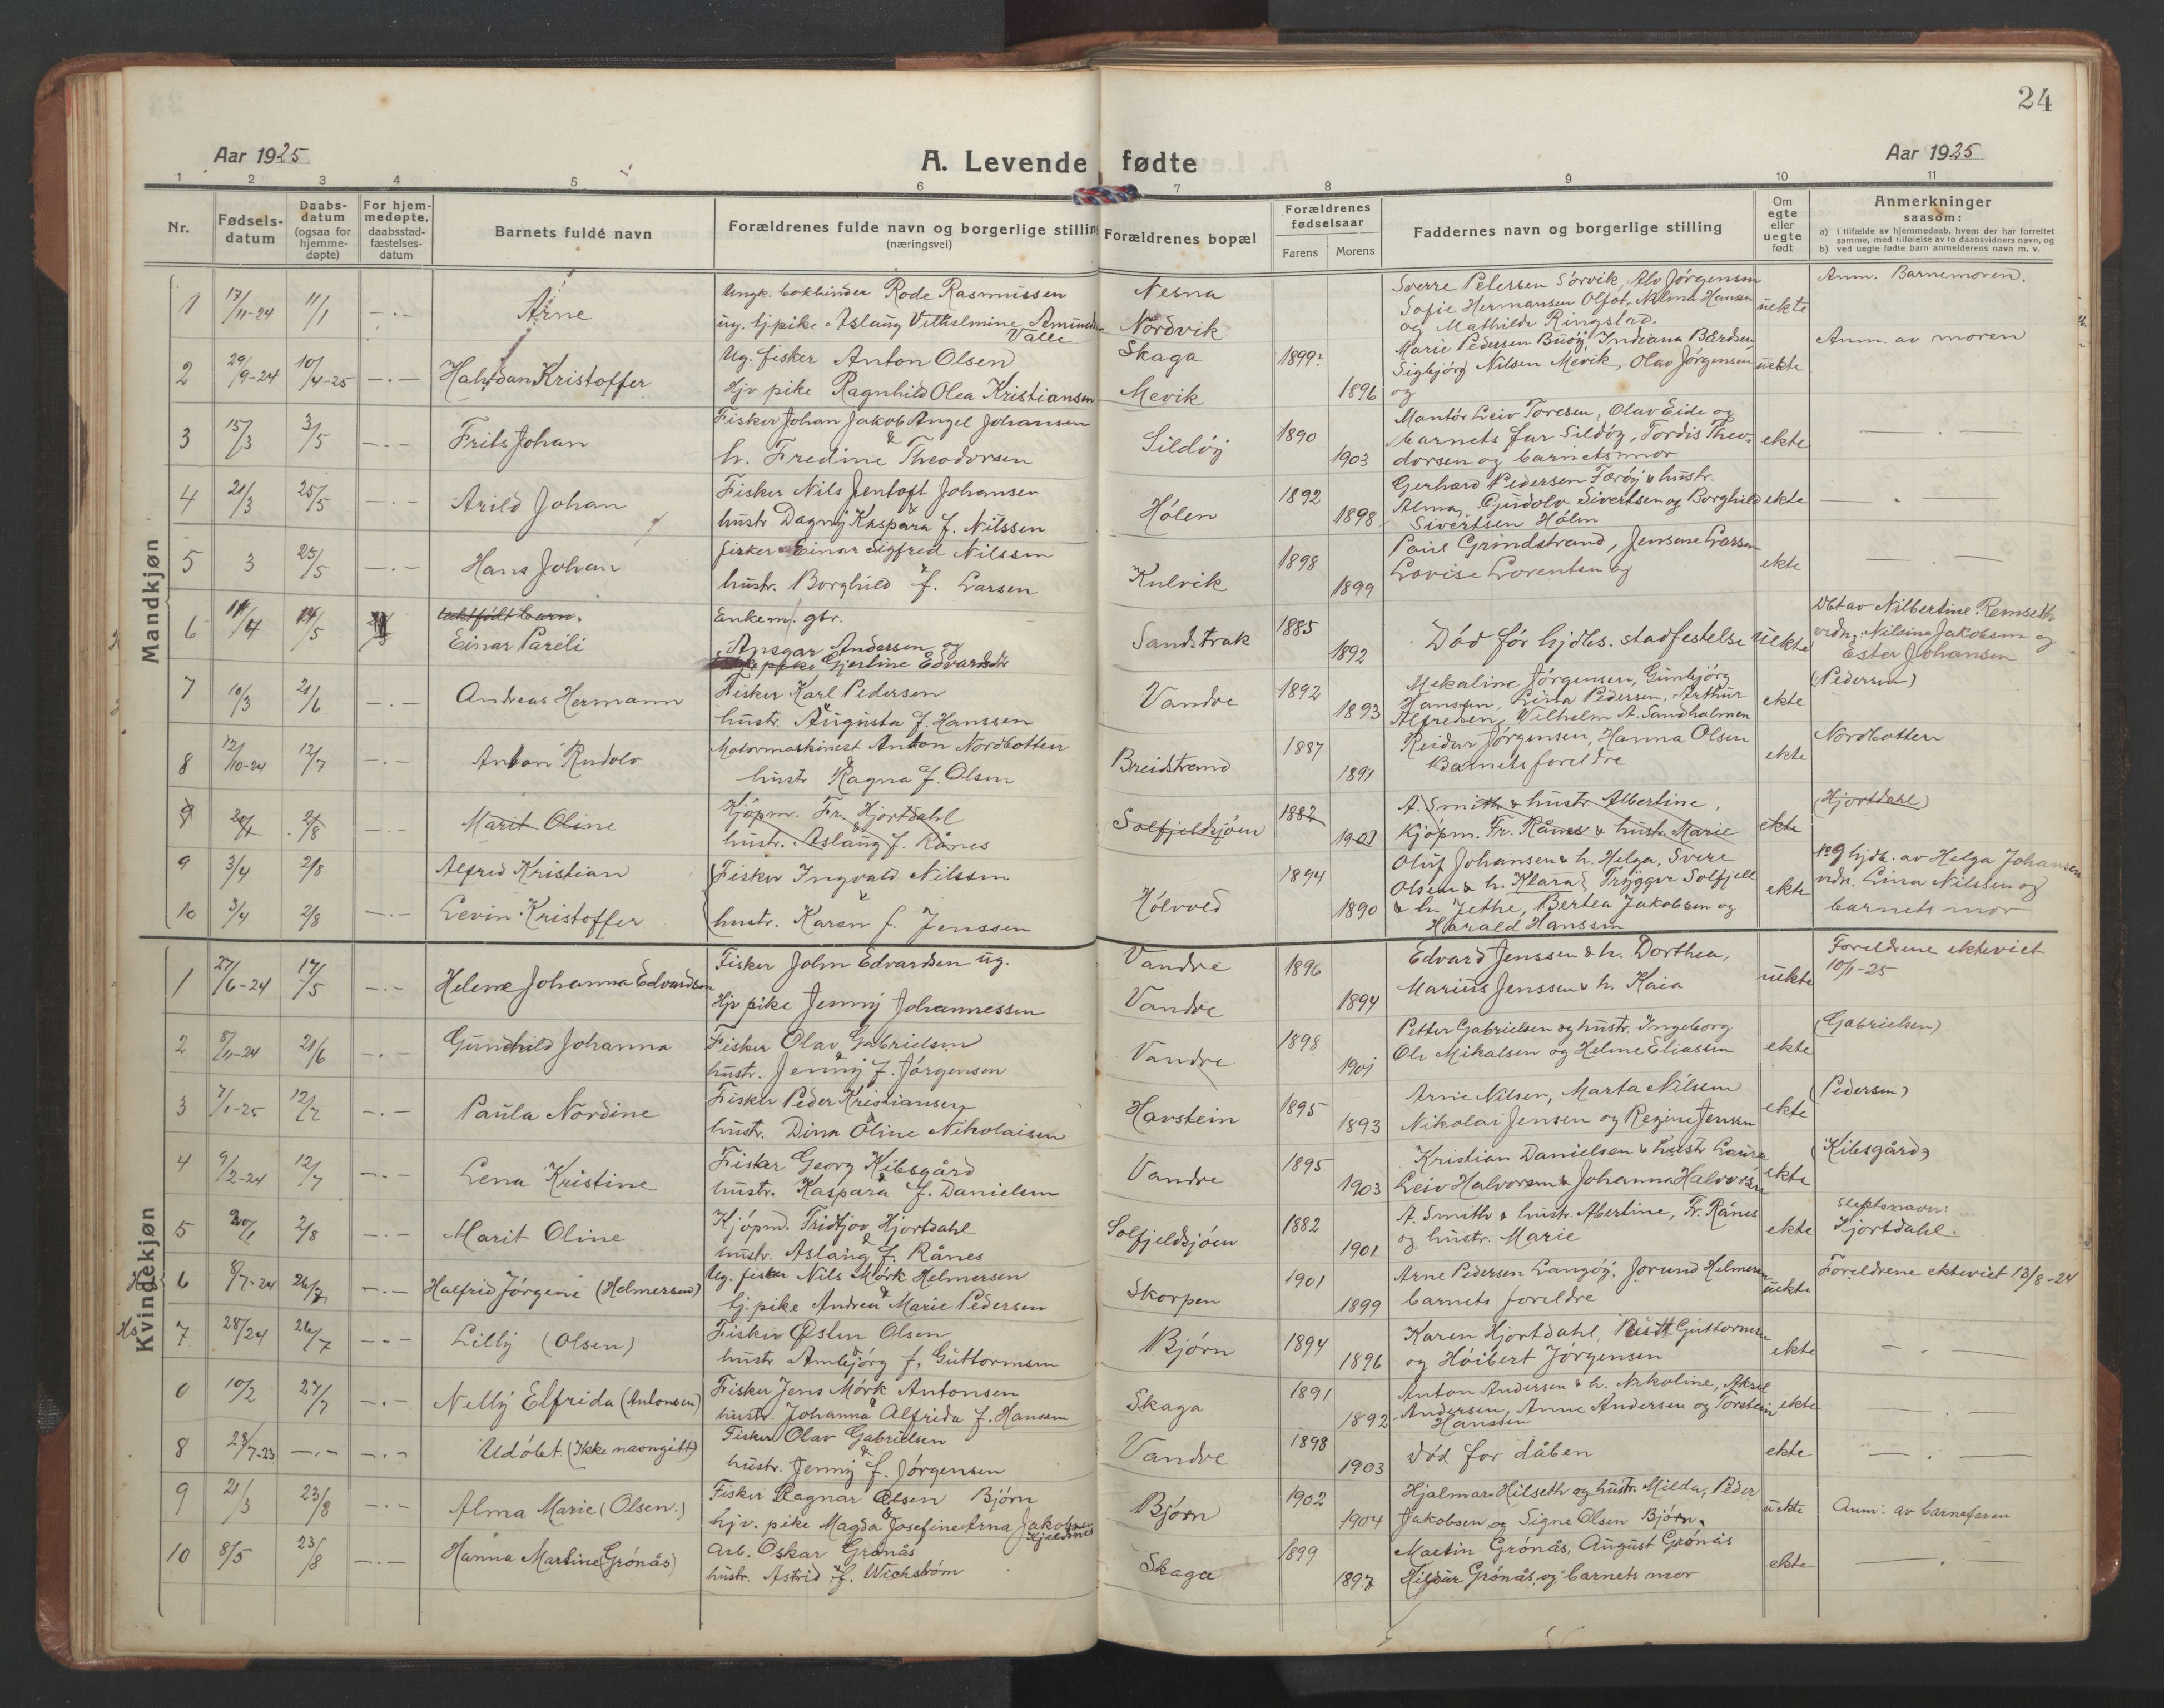 24
Aar 1925
A. Levende fødte
Aar 1925
1 2 3 4 5 6 7 8 9 10 11
Nr.
Fødsels-
datum
Daabs-
datum
(ogsaa for
hjemme-
døpte)
For hjem-
medøpte.
daabsstad-
fæstelses-
datum
Barnets fulde navn
Forældrenes fulde navn og borgerlige stilling
(næringsvei)
Forældrenes bopæl
Forældrenes
fødselsaar
Farens Morens
Faddernes navn og borgerlige stilling
Om
egte
eller
uegte
født
Anmerkninger
saasom:
a) i tilfælde av hjemmedaab, hvem der har forrettet
samme, med tilføielse av to daabsvidners navn, og
b) ved uegte fødte barn anmelderens navn m. v.
Mandkjøn
1 17/11-24 11/1 -.- Arne
Ungk. bokbinder Rode Rasmussen
ug. tj.pike Aslaug Vilhelmine
Valle
Nesna
Nordvik
Sverre Petersen Sörvik, Alv Jörgensen
Sofie Hermansen Nilma Hansen
og Mathilde Ringstad.
uekte
Anm. Barnemoren.
2 29/9-24 10/4-25 -.- Halfdan Kristoffer
Ug. fisker Anton Olsen
Hjv pike Ragnhild Olea Kristiansen
Skaga
Mevik
1899?
1896
Marie Pedersen Buöy, Indiana Bårdsen
Sigbjörg Nilsen Mevik, Olav Jörgensen
og
uekte
Anm. av moren
3 15/3 3/5 -.- Frits Johan
Fisker Johan Jakob Angel Johansen
&
h. Fredine Theodorsen
Sildöy
1890
1903
Mantör Leiv Toresen, Olav Eide og
barnets far Sildöy, Tordis Theo-
dorsen og barnets mor
ekte
4 21/3 25/5 -.- Arild Johan
Fisker Nils Jentoft Johansen
&
hustr Dagny Kaspara f. Nilssen
Hölen
1892
1898
Gerhard Pedersen Færöy & hustr.
Alma, Gudolv Sivertsen og Borghild
Sivertsen Hölen
ekte
5 3 25/5 -.- Hans Johan
fisker Einar Sigfred Nilssen
&
hustr. Borghild f. Larsen
Kulvik
1898
1899
Grindstrand, Jensene Larsen
Lovise Lorentsen og
ekte
6 14/5 Einar Pareli
Enkem. gbr.
Ansgar Andersen og
pike Gjertine Edvardsdtr
Sandstrak
1885
1892
Död för hjdbs. stadfestelse
uekte
Döbt av Nilbertine Remseth
vidn. Nilsine Jakobsen og
Ester Johansen
7 10/3 21/6 -.- Andreas Hermann
Fisker Karl Pedersen
&
hustr. Augusta f. Hanssen
Vandve
1892
1893
Mekaline Jörgensen, Gunbjörg
Hansen, Lina Pedersen, Arthur
Alfredsen, Wilhelm A. Sandholmen
ekte
(Pedersen)
8 12/10-24 12/7 -.- Anton Rudolv
Motormaskinist Anton Nordbotten
&
hustr Ragna f. Olsen
Breidstrand
1887
1891
Reidar Jörgensen, Hanna Olsen
Barnets foreldre
ekte
Nordbotten
9 2/8 -.- Marit Oline
Kjöpm. Fr. Hjortdahl
&
hustr. Aslaug f. Rånes
Solfjeldsjöen
1882
1901
A. Smith & hustr. Albertine,
Kjöpm. Fr. Rånes & hustr. Marie
ekte
(Hjortdahl)
9 3/4 2/8 Alfred Kristian
10 3/4 2/8 -.- Levin Kristoffer
Fisker Ingvald Nilssen
&
hustr. Karen f. Jenssen
Hölvved
1894
1890
Oluf Johansen & h. Helga, Svere
Olsen & h. Klara, Tryggve Solfjell
& h. Jethe, Bertea Jakobsen og
Harald Hanssen
ekte
No 9 hjdb. av Helga Johansen
vidn. Lina Nilssen og
barnets mor
Kvindekjøn
1 27/6-24 17/5 -.- Helene Johanna Edvardsen
Fisker John Edvardsen ug.
Hjv pike Jenny Johannessen
Vandve
Vandve
1896
1894
Edvard Jenssen & h. Dorthea,
Marius Jenssen & h. Kaia
uekte
Foreldrene ekteviet
10/1-25
2 8/11-24 21/6 -.- Gunhild Johanna
Fisker Olav Gabrielsen
&
hustr. Jenny f. Jörgensen
Vandve
1898
1901
Petter Gabrielsen og hustr. Ingeborg
Ole Mikalsen og Helene Eliassen
ekte
(Gabrielsen)
3 7/1-25 12/7 -.- Paula Nordine
Fisker Peder Kristiansen
&
hustr. Dina Oline Nikolaisen
Havstein
1895
1893
Arnie Nilsen, Marta Nilssen
Nikolai Jensen og Regine Jensen
ekte
(Pedersen)
4 9/2-24 12/7 -.- Lena Kristine
Fisker Georg Kibsgård
&
hustr. Kaspara f. Danielsen
Vandve
1895
1903
Kristian Danielsen & hustr Laura
Leiv Halvorsen & Johanna Halvorsen
ekte
(Kibsgård)
5 2/8 -.- Marit Oline
Kjöpm. Fridtjov Hjortdahl
&
hustr. Aslaug f. Rånes
Solfjeldsjöen
1882
1901
A. Smith & hustr. Albertine, Fr. Rånes
og hustr. Marie
ekte
slektsnavn:
Hjortdahl.
6 8/7-24 26/7 -.- Halfrid Jörgine (Helmersen)
Ug. fisker Nils Mörk Helmersen
&
tj. pike Andrea Marie Pedersen
Skorpen
1901
1899
Arne Pedersen Langöy, Jorund Helmersen
barnets foreldre
uekte
Foreldrene ekteviet 13/8-24
7 28/24 26/7 -.- Lilly (Olsen)
Fisker Østen Olsen
&
hustr Arnbjörg f. Guttormsen
Bjørn
1894
1896
Karen Hjortdahl, Guttormsen
og Höibert Jörgensen
ekte
0 10/2 27/7 -.- Nelly Elfrida (Antonsen)
Fisker Jens Mörk Antonsen
&
hustr. Johanna Alfrida f. Hanssen
Skaga
1891
1892
Anton Andersen & h. Nikoline, Aksel
Andersen, Anne Andersen og Torstein
Hanssen
ekte
8 28/7-23 -.- -.- Udöbt (Ikke navngitt)
Fisker Olav Gabrielsen
&
hustr. Jenny f. Jörgensen
Vandve
1898
1903
Död for dåben
ekte
9 21/3 23/8 -.- Alma Marie (Olsen.)
Fisker Ragnar Olsen Bjørn
&
hjv. pike Magda Josefine Arna Jakobsen
Bjørn
1902
1904
Hjalmar Hilseth og hustr. Milda, Peder
Jakobsen og Signe Olsen Bjørn.
uekte
Anm: av barnefaren
10 8/5 23/8 -.- Hanna Martine (Grönås)
Arb. Oskar Grönås
&
hustr. Astrid f. Wichström
Skaga
1899
1897
Martin Grönås, August Grönås
Hildur Grönås, og barnets mor
ekte